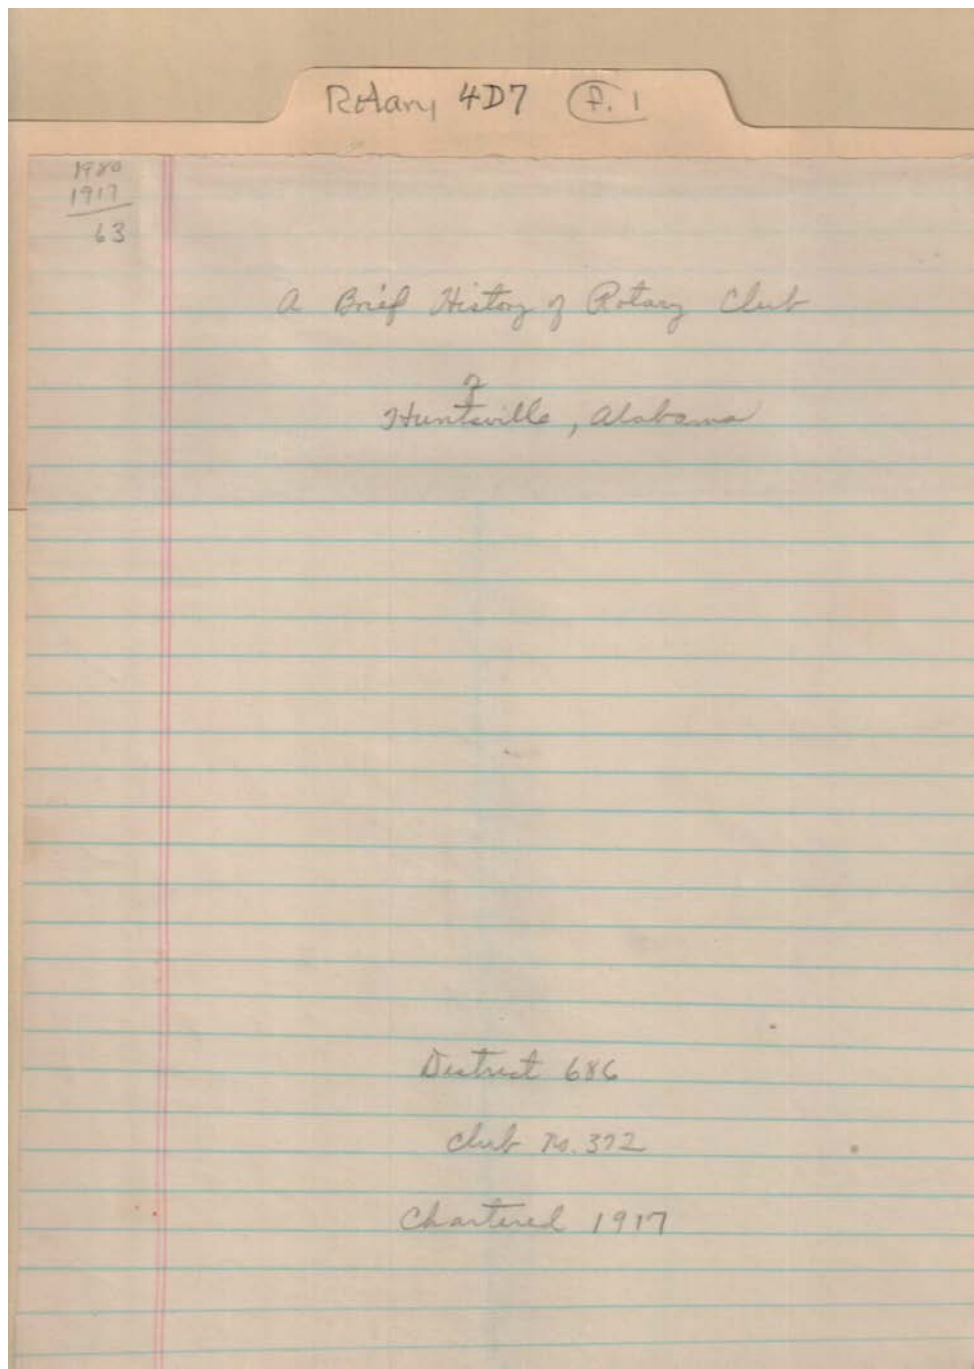 Rotary 4D7 P. 1
1980
1917
63
A Brief History of Rotary Club
of
Huntsville, Alabama
District 686
Club No. 372
Chartered 1917